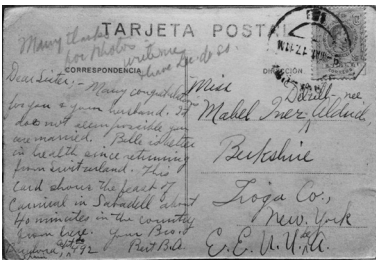 TARJETA POSTAL
Many thanks
for photos
write me
CORRESPONDENCIA
DIRECCIÓN
Dear Sister:- Many
for you & your husband. It
does not seem possible you
are married. Belle is better
in health since returning
from Switzerland. This
card shows the feast of
Carnival in Sabadell about
40 minutes in the country
from here. Your Bro.
Bert B.A.
92
Miss
nee
Mabel Inez
Berkshire
Tioga Co.,
New York
E.E. U.U. de A.